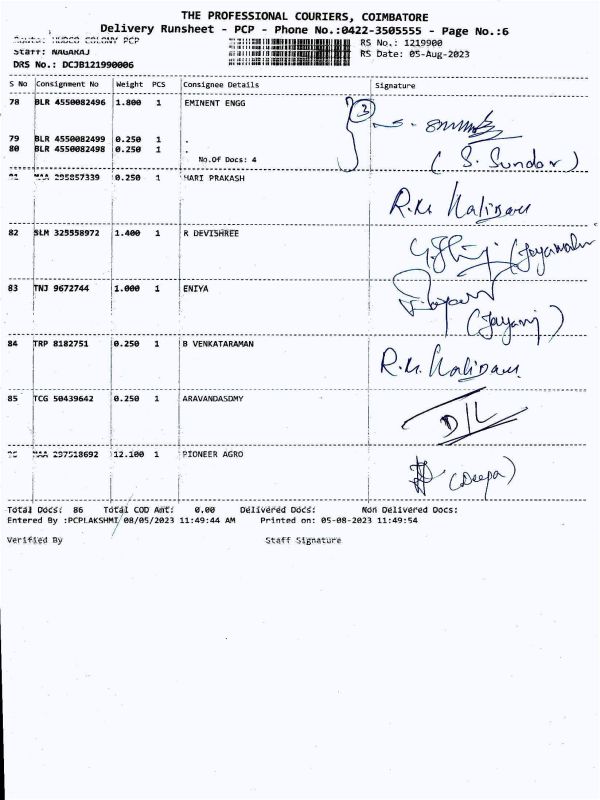 THE PROFESSIONAL COURIERS, COIMBATORE
Delivery Runsheet - PCP - Phone No.:0422-3505555 - Page No.:6
HUDCO COLONY PCP
RS No.: 1219900
Staff: NAGARAJ
RS Date: 05-Aug-2023
DRS No.: DCJB121990006
S No Consignment No Weight PCS Consignee Details Signature
78 BLR 4550082496 1.800 1 EMINENT ENGG
3
79 BLR 4550082499 0.250 1 .
80 BLR 4550082498 0.250 1 .
No.Of Docs: 4
(S. Sundar)
81 MAA 295857339 0.250 1 HARI PRAKASH
R.M.
82 SLM 325558972 1.400 1 R DEVISHREE
83 TNJ 9672744 1.000 1 ENIYA
84 TRP 8182751 0.250 1 B VENKATARAMAN
R.M.
85 TCG 50439642 0.250 1 ARAVANDASDMY
D/L
86 MAA 297518692 12.100 1 PIONEER AGRO
(Deepa)
Total Docs: 86 Total COD Amt: 0.00 Delivered Docs: Non Delivered Docs:
Entered By :PCPLAKSHMI 08/05/2023 11:49:44 AM Printed on: 05-08-2023 11:49:54
Verified By Staff Signature